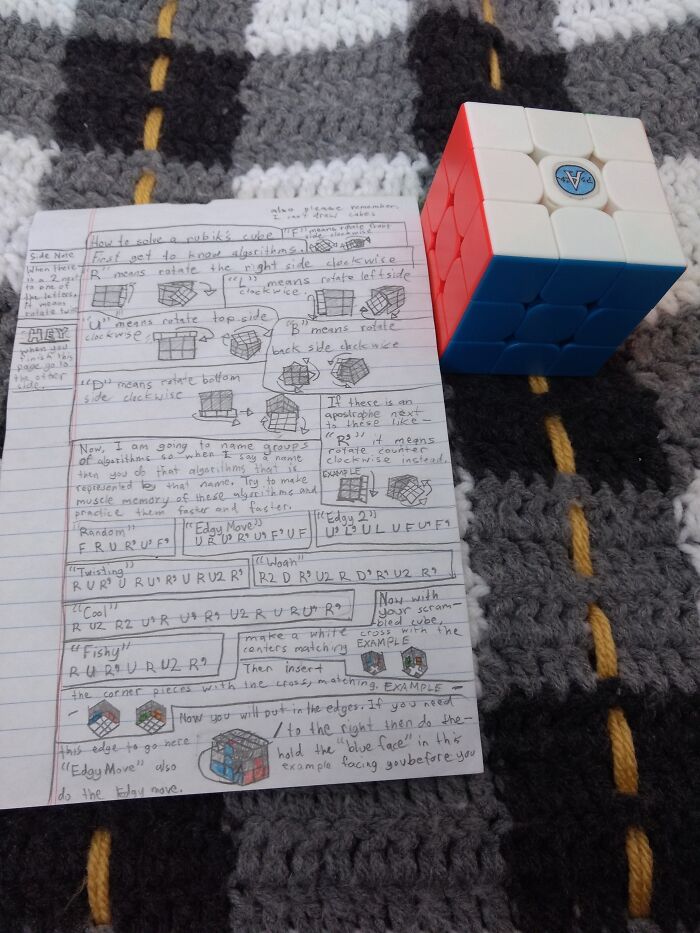 also please remember,
I can't draw cubes
How to solve a rubik's cube
"F" means rotate front
side clockwise
First get to know algorithms.
Side Note
When there
is a 2 next
to one of
the letters,
it means
rotate twice
HEY
when you
finish this
page go to
the other
side.
"R" means rotate the right side clockwise
"L" means rotate left side
clockwise.
"U" means rotate top side
clockwise
means rotate
back side clockwice
"D" means rotate bottom
side clockwise
If there is an
apostrophe next
to these like-
"R' it means
rotate counter
clockwise instead.
EXAMPLE
Now, I am going to name groups
of algorithms so when I say a name
then you do that algorithms that is
represented by that name. Try to make
muscle memory of these algorithms and
practice them faster and faster.
"Random"
F R U R' U' F'
"Edgy Move"
U R U' R' U' F' U F
"Edgy 2"
U' L' U L U F U' F'
"Twisting"
R U R' U R U' R' U R U2 R'
"Woah"
R2 D R' U2 R D' R' U2 R'
"Cool"
R U2 R2 U' R' U2 R U R'
"Fishy"
R U R' U R U2 R'
Now with
your scram-
bled cube,
make a white cross with the
centers matching EXAMPLE
Then insert
the corner pieces with the cross, matching. EXAMPLE -
Now you will put in the edges. If you need
this edge to go here
to the right then do the-
"Edgy Move" also
hold the "blue face" in this
example facing you before you
do the Edgy move.